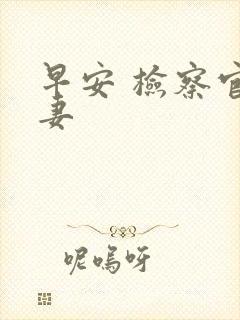 早安 檢察官
妻
呢嗚呀